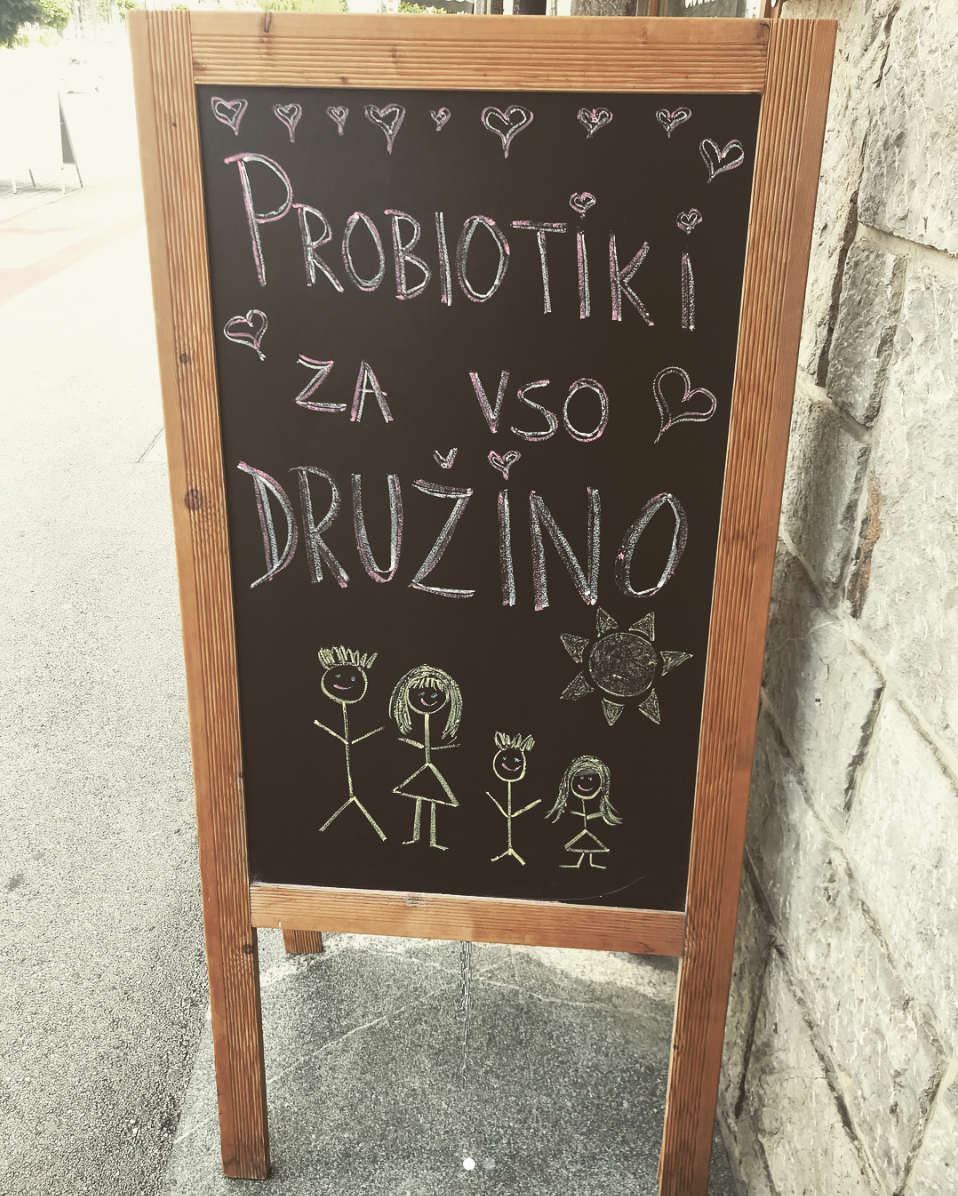 PROBIOTIKI
ZA VSO
DRUŽINO